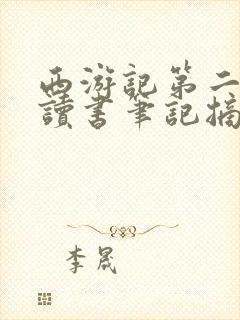 西游記第二
讀書筆記摘
李晟